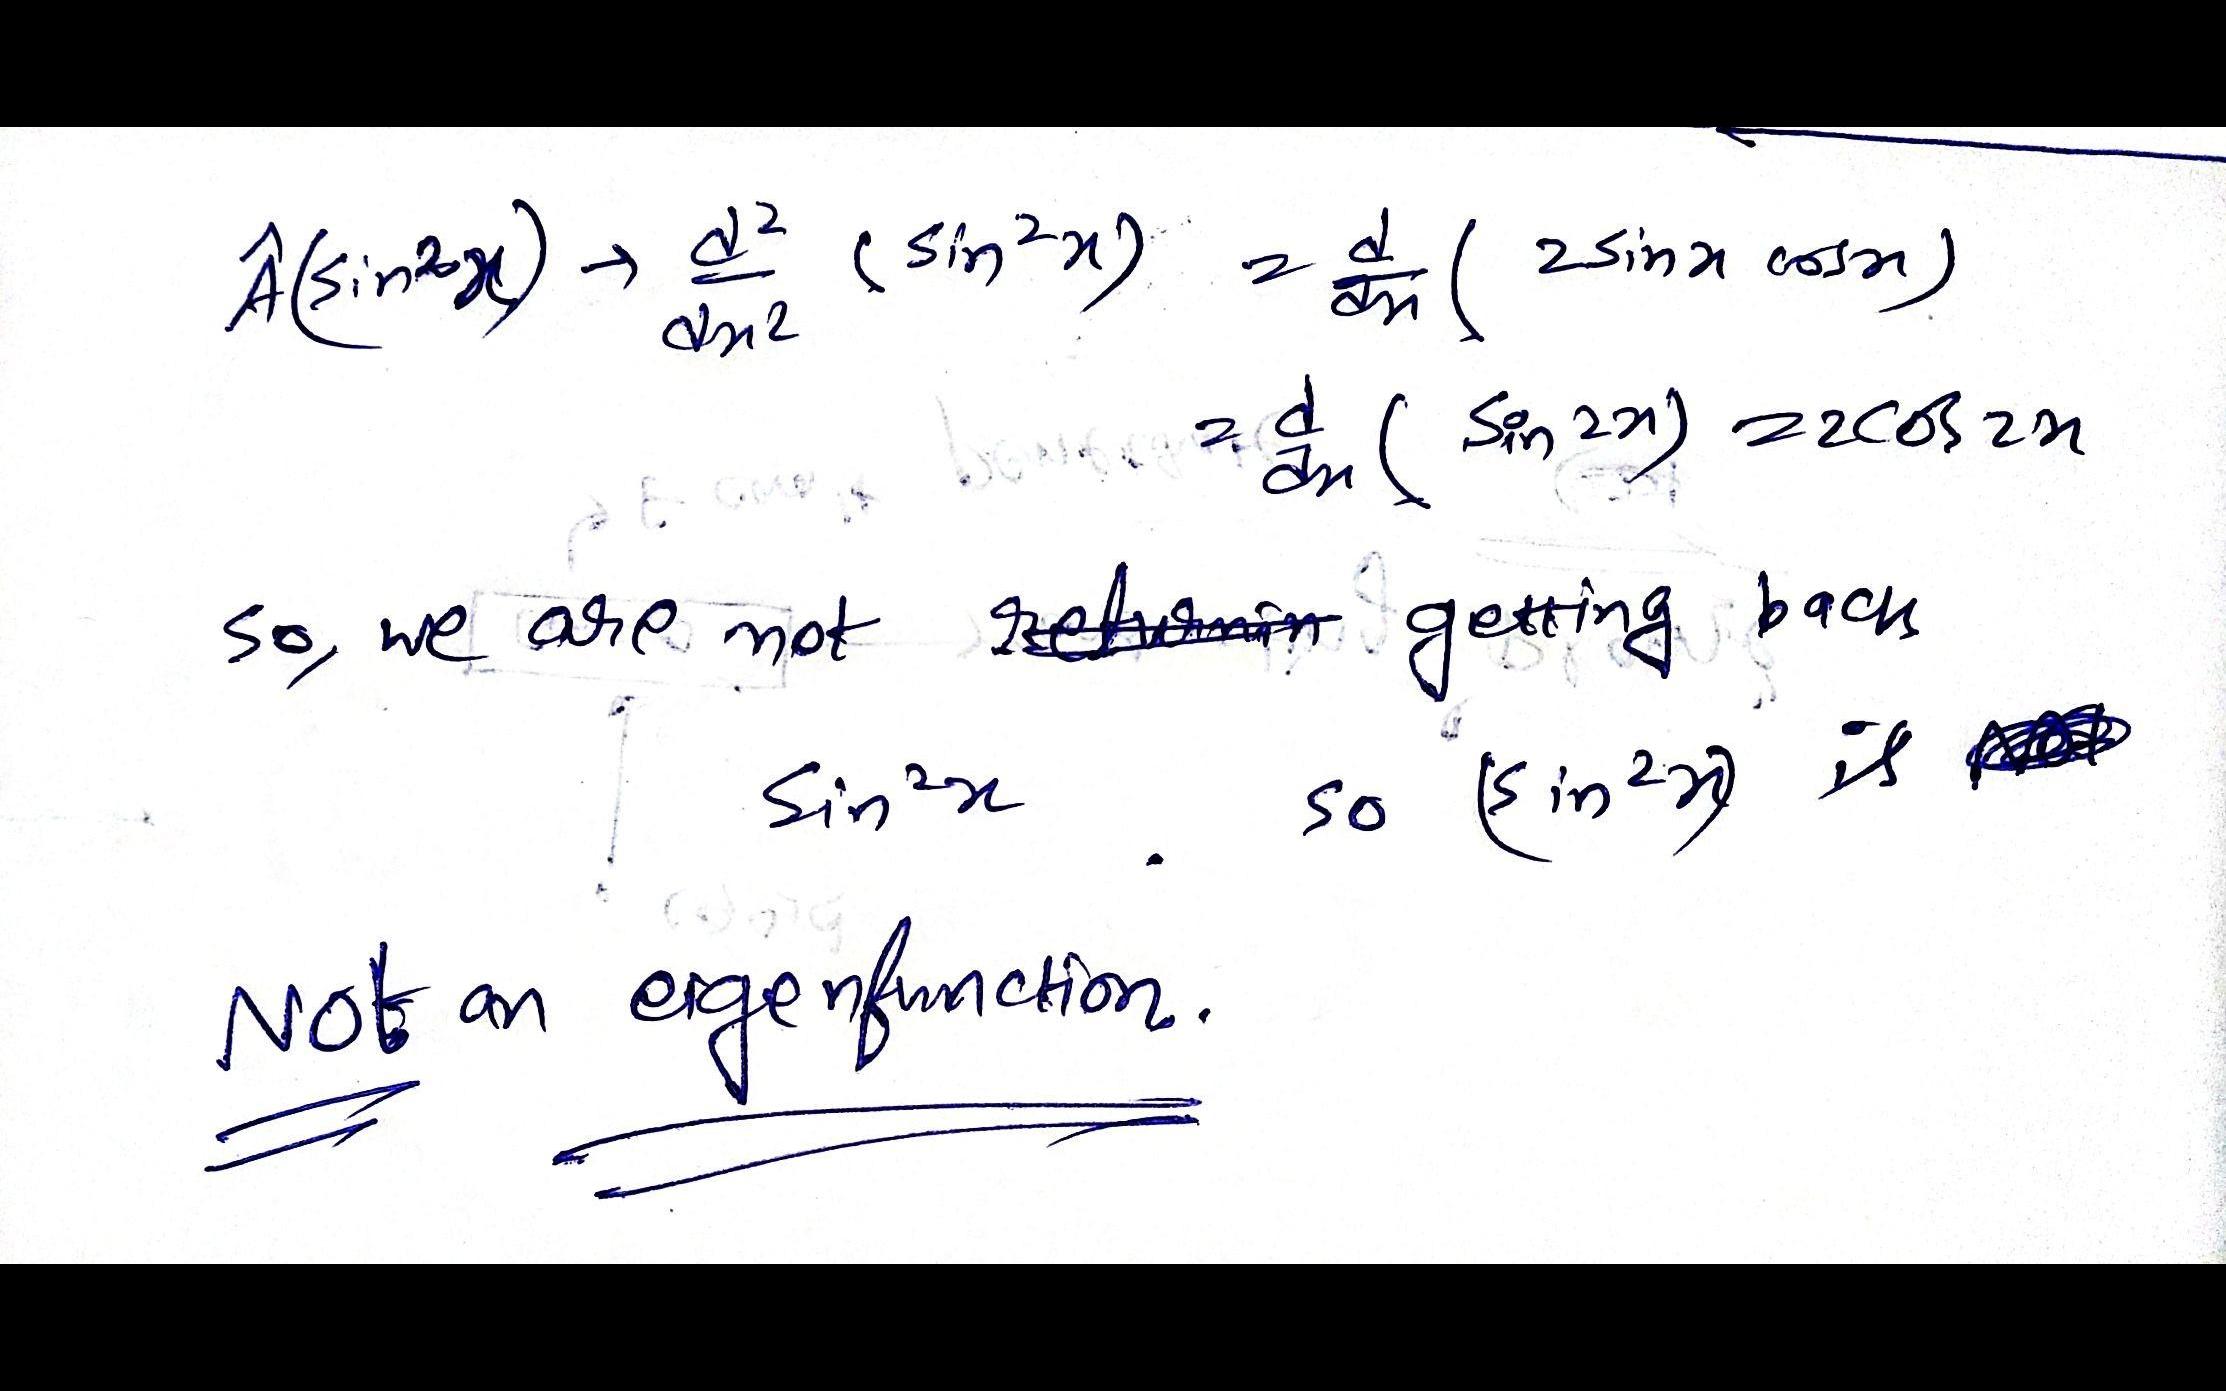 Â(sin²x) → d²/dx² (sin²x) = d/dx (2sinx cosx)
= d/dx (sin2x) = 2cos2x
so, we are not returnin getting back
sin²x. so (sin²x) is
NOt an eigenfunction.